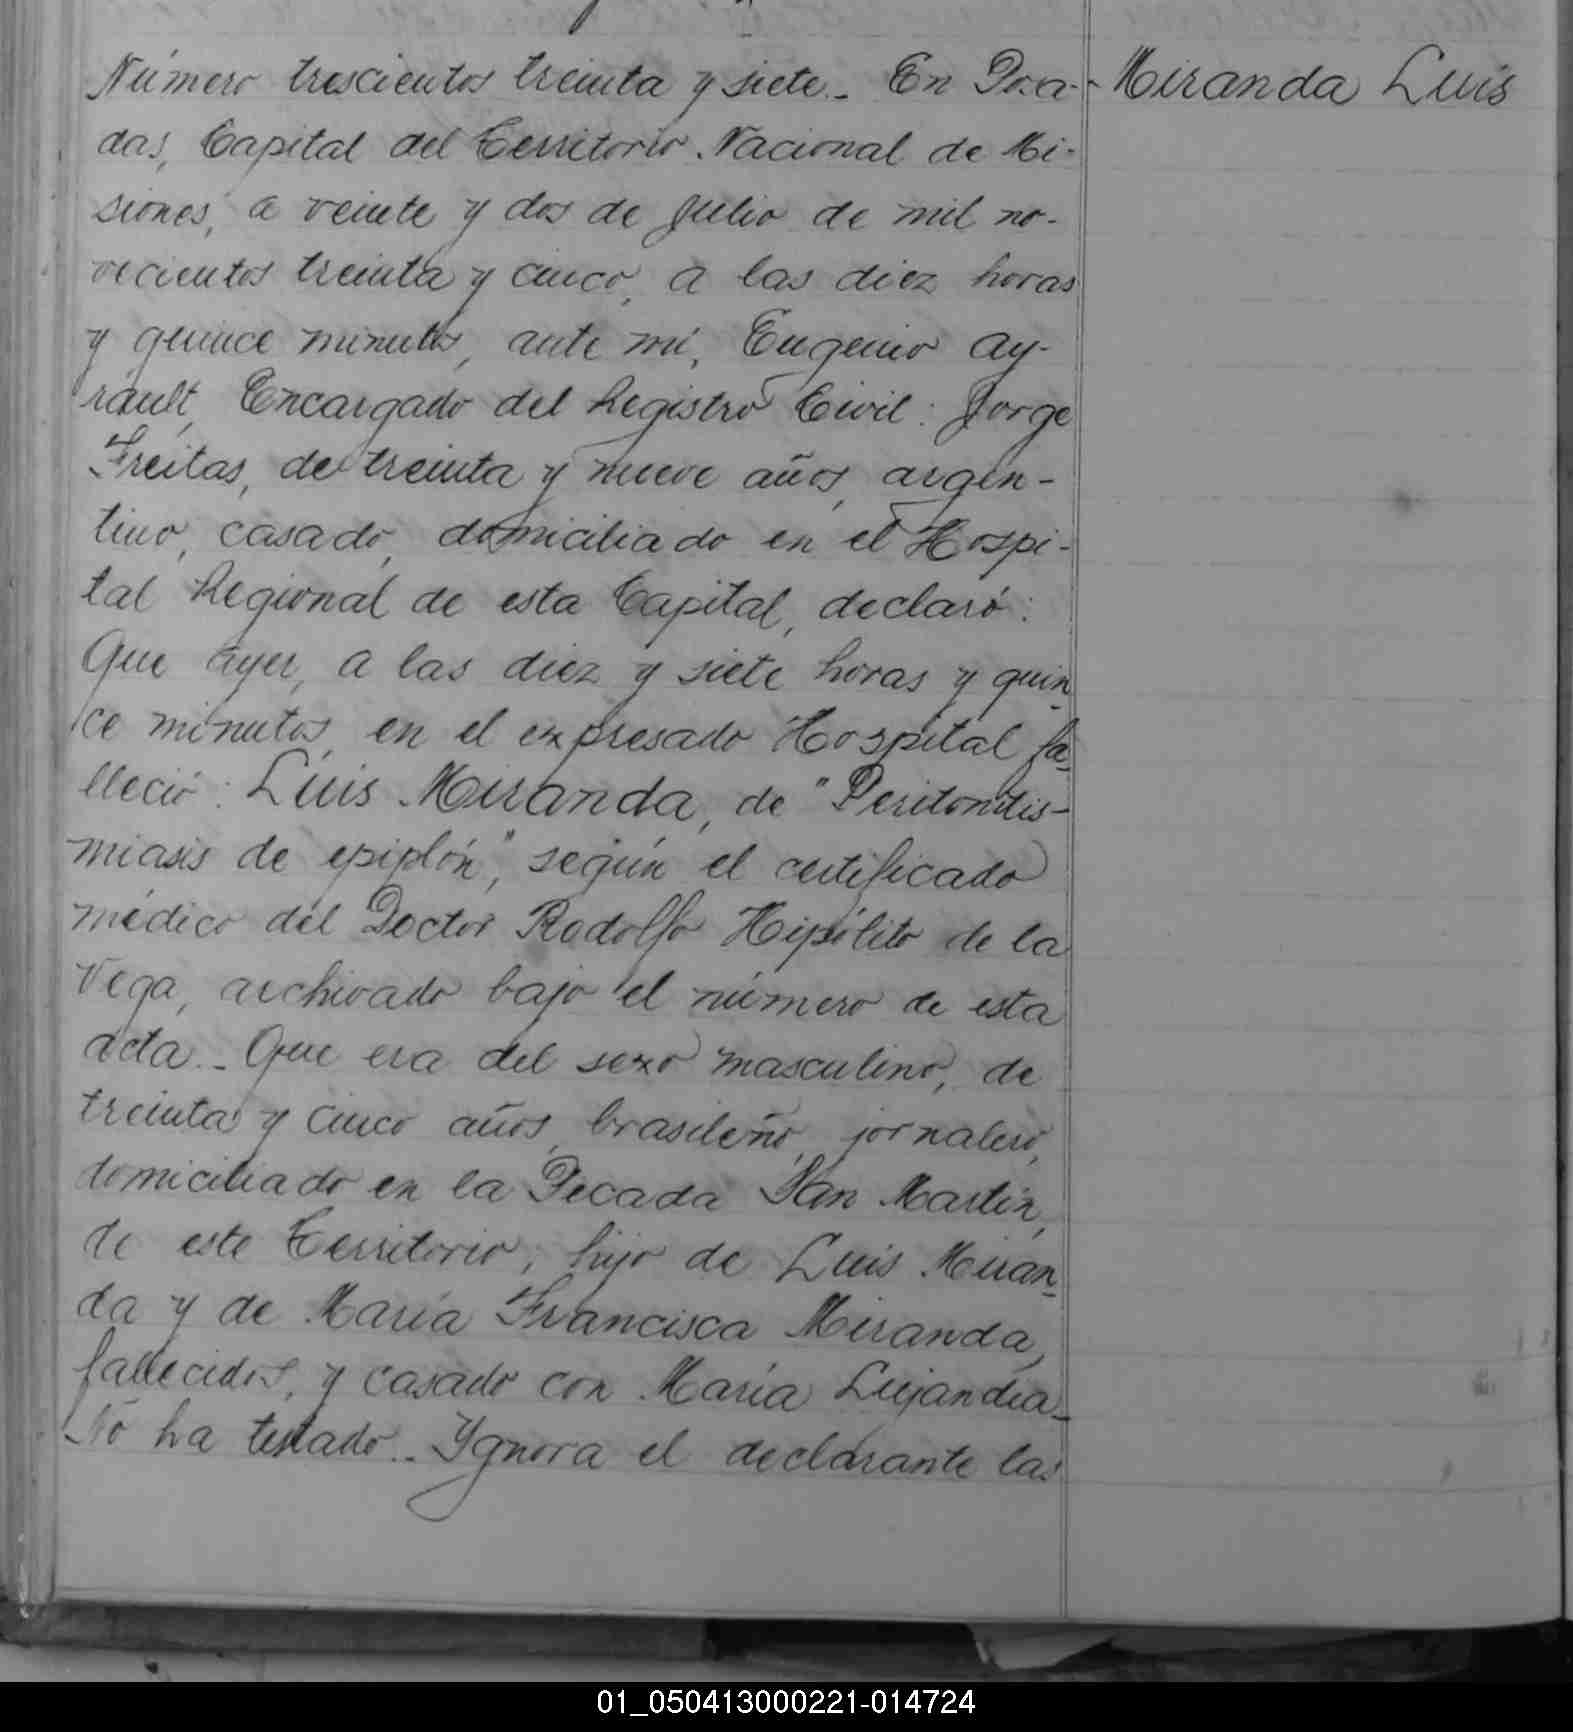 Número trescientos treinta y siete.- En Posa-
das, Capital del Territorio Nacional de Mi-
siones, a veinte y dos de Julio de mil no-
vecientos treinta y cinco, a las diez horas
y quince minutos, ante mí, Eugenio Ay-
rault, Encargado del Registro Civil: Jorge
Freitas, de treinta y nueve años, argen-
tino, casado, domiciliado en el Hospi-
tal Regional de esta Capital, declaró:
Que ayer, a las diez y siete horas y quin-
ce minutos, en el expresado Hospital fa-
lleció: Luis Miranda, de "Peritonitis-
miasis de epiplón", según el certificado
médico del Doctor Rodolfo Hipólito de la
Vega, archivado bajo el número de esta
acta.- Que era del sexo masculino, de
treinta y cinco años, brasileño, jornalero,
domiciliado en la Picada San Martín,
de este Territorio, hijo de Luis Miran-
da y de María Francisca Miranda,
fallecidos, y casado con María Lujandia-
No ha testado.- Ygnora el declarante las
Miranda Luis
01_050413000221-014724